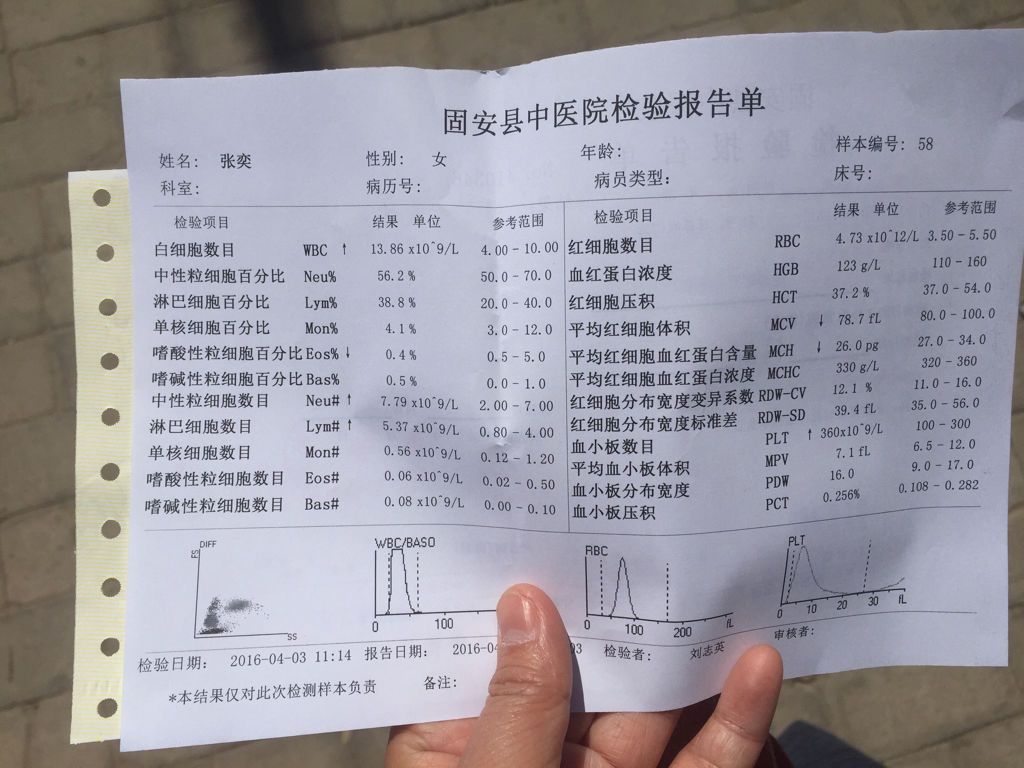 固安县中医院检验报告单
姓名: 张奕 性别: 女 年龄: 样本编号: 58
科室: 病历号: 病员类型: 床号:
检验项目 结果 单位 参考范围
白细胞数目 WBC ↑ 13.86 x10^9/L 4.00-10.00
中性粒细胞百分比 Neu% 56.2 % 50.0-70.0
淋巴细胞百分比 Lym% 38.8 % 20.0-40.0
单核细胞百分比 Mon% 4.1 % 3.0-12.0
嗜酸性粒细胞百分比 Eos% ↓ 0.4 % 0.5-5.0
嗜碱性粒细胞百分比 Bas% 0.5 % 0.0-1.0
中性粒细胞数目 Neu# ↑ 7.79 x10^9/L 2.00-7.00
淋巴细胞数目 Lym# ↑ 5.37 x10^9/L 0.80-4.00
单核细胞数目 Mon# 0.56 x10^9/L 0.12-1.20
嗜酸性粒细胞数目 Eos# 0.06 x10^9/L 0.02-0.50
嗜碱性粒细胞数目 Bas# 0.08 x10^9/L 0.00-0.10
检验项目 结果 单位 参考范围
红细胞数目 RBC 4.73 x10^12/L 3.50-5.50
血红蛋白浓度 HGB 123 g/L 110-160
红细胞压积 HCT 37.2 % 37.0-54.0
平均红细胞体积 MCV ↓ 78.7 fL 80.0-100.0
平均红细胞血红蛋白含量 MCH ↓ 26.0 pg 27.0-34.0
平均红细胞血红蛋白浓度 MCHC 330 g/L 320-360
红细胞分布宽度变异系数 RDW-CV 12.1 % 11.0-16.0
红细胞分布宽度标准差 RDW-SD 39.4 fL 35.0-56.0
血小板数目 PLT ↑ 360x10^9/L 100-300
平均血小板体积 MPV 7.1 fL 6.5-12.0
血小板分布宽度 PDW 16.0 9.0-17.0
血小板压积 PCT 0.256% 0.108-0.282
DIFF
FS
SS
WBC/BASO
0 100
RBC
0 100 200 fL
PLT
0 10 20 30 fL
检验日期: 2016-04-03 11:14 报告日期: 2016-04 03 检验者: 刘志英 审核者:
*本结果仅对此次检测样本负责 备注: